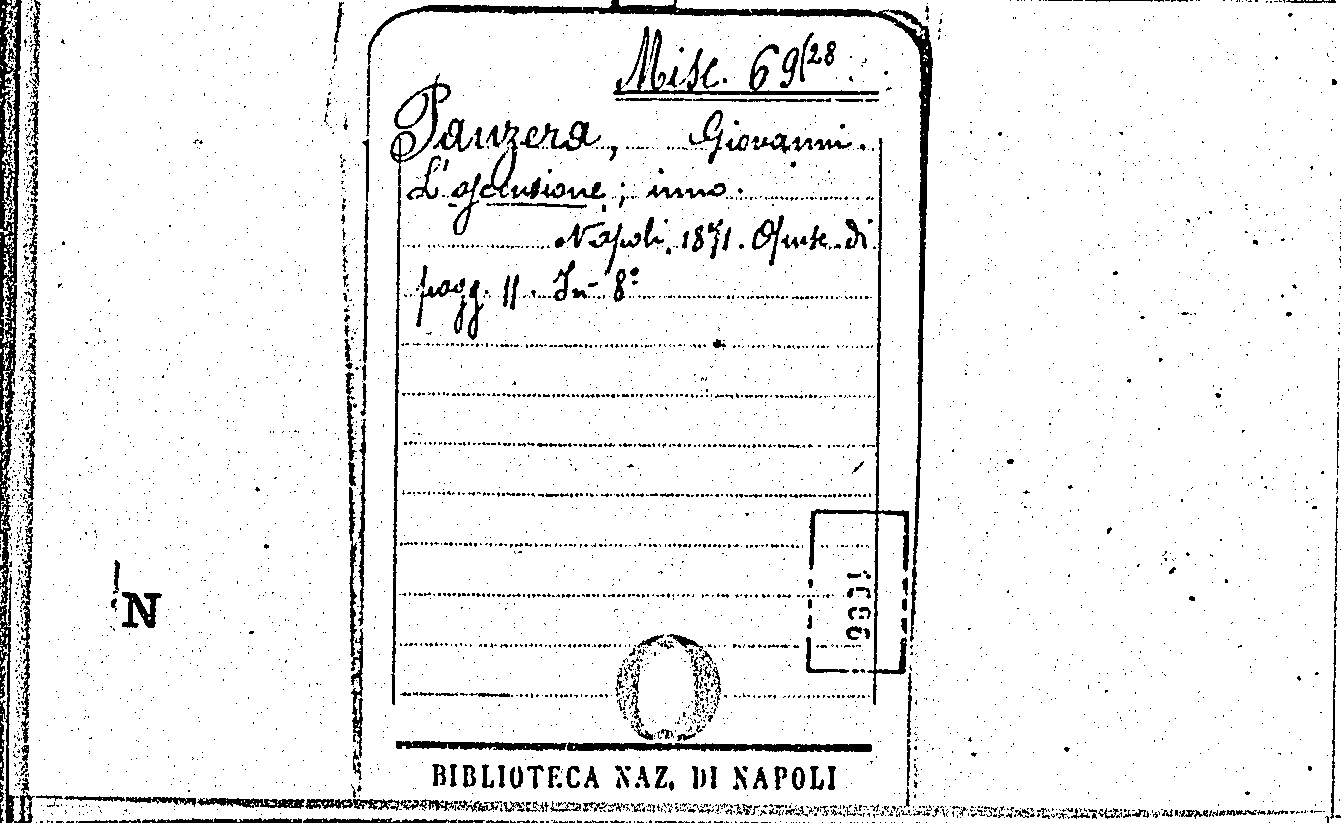 Misc. 69(28
Panzera, Giovanni.
L'ascensione; inno.
Napoli, 1871. Opusc. di
pagg. 11. In-8º
N
BIBLIOTECA NAZ. DI NAPOLI